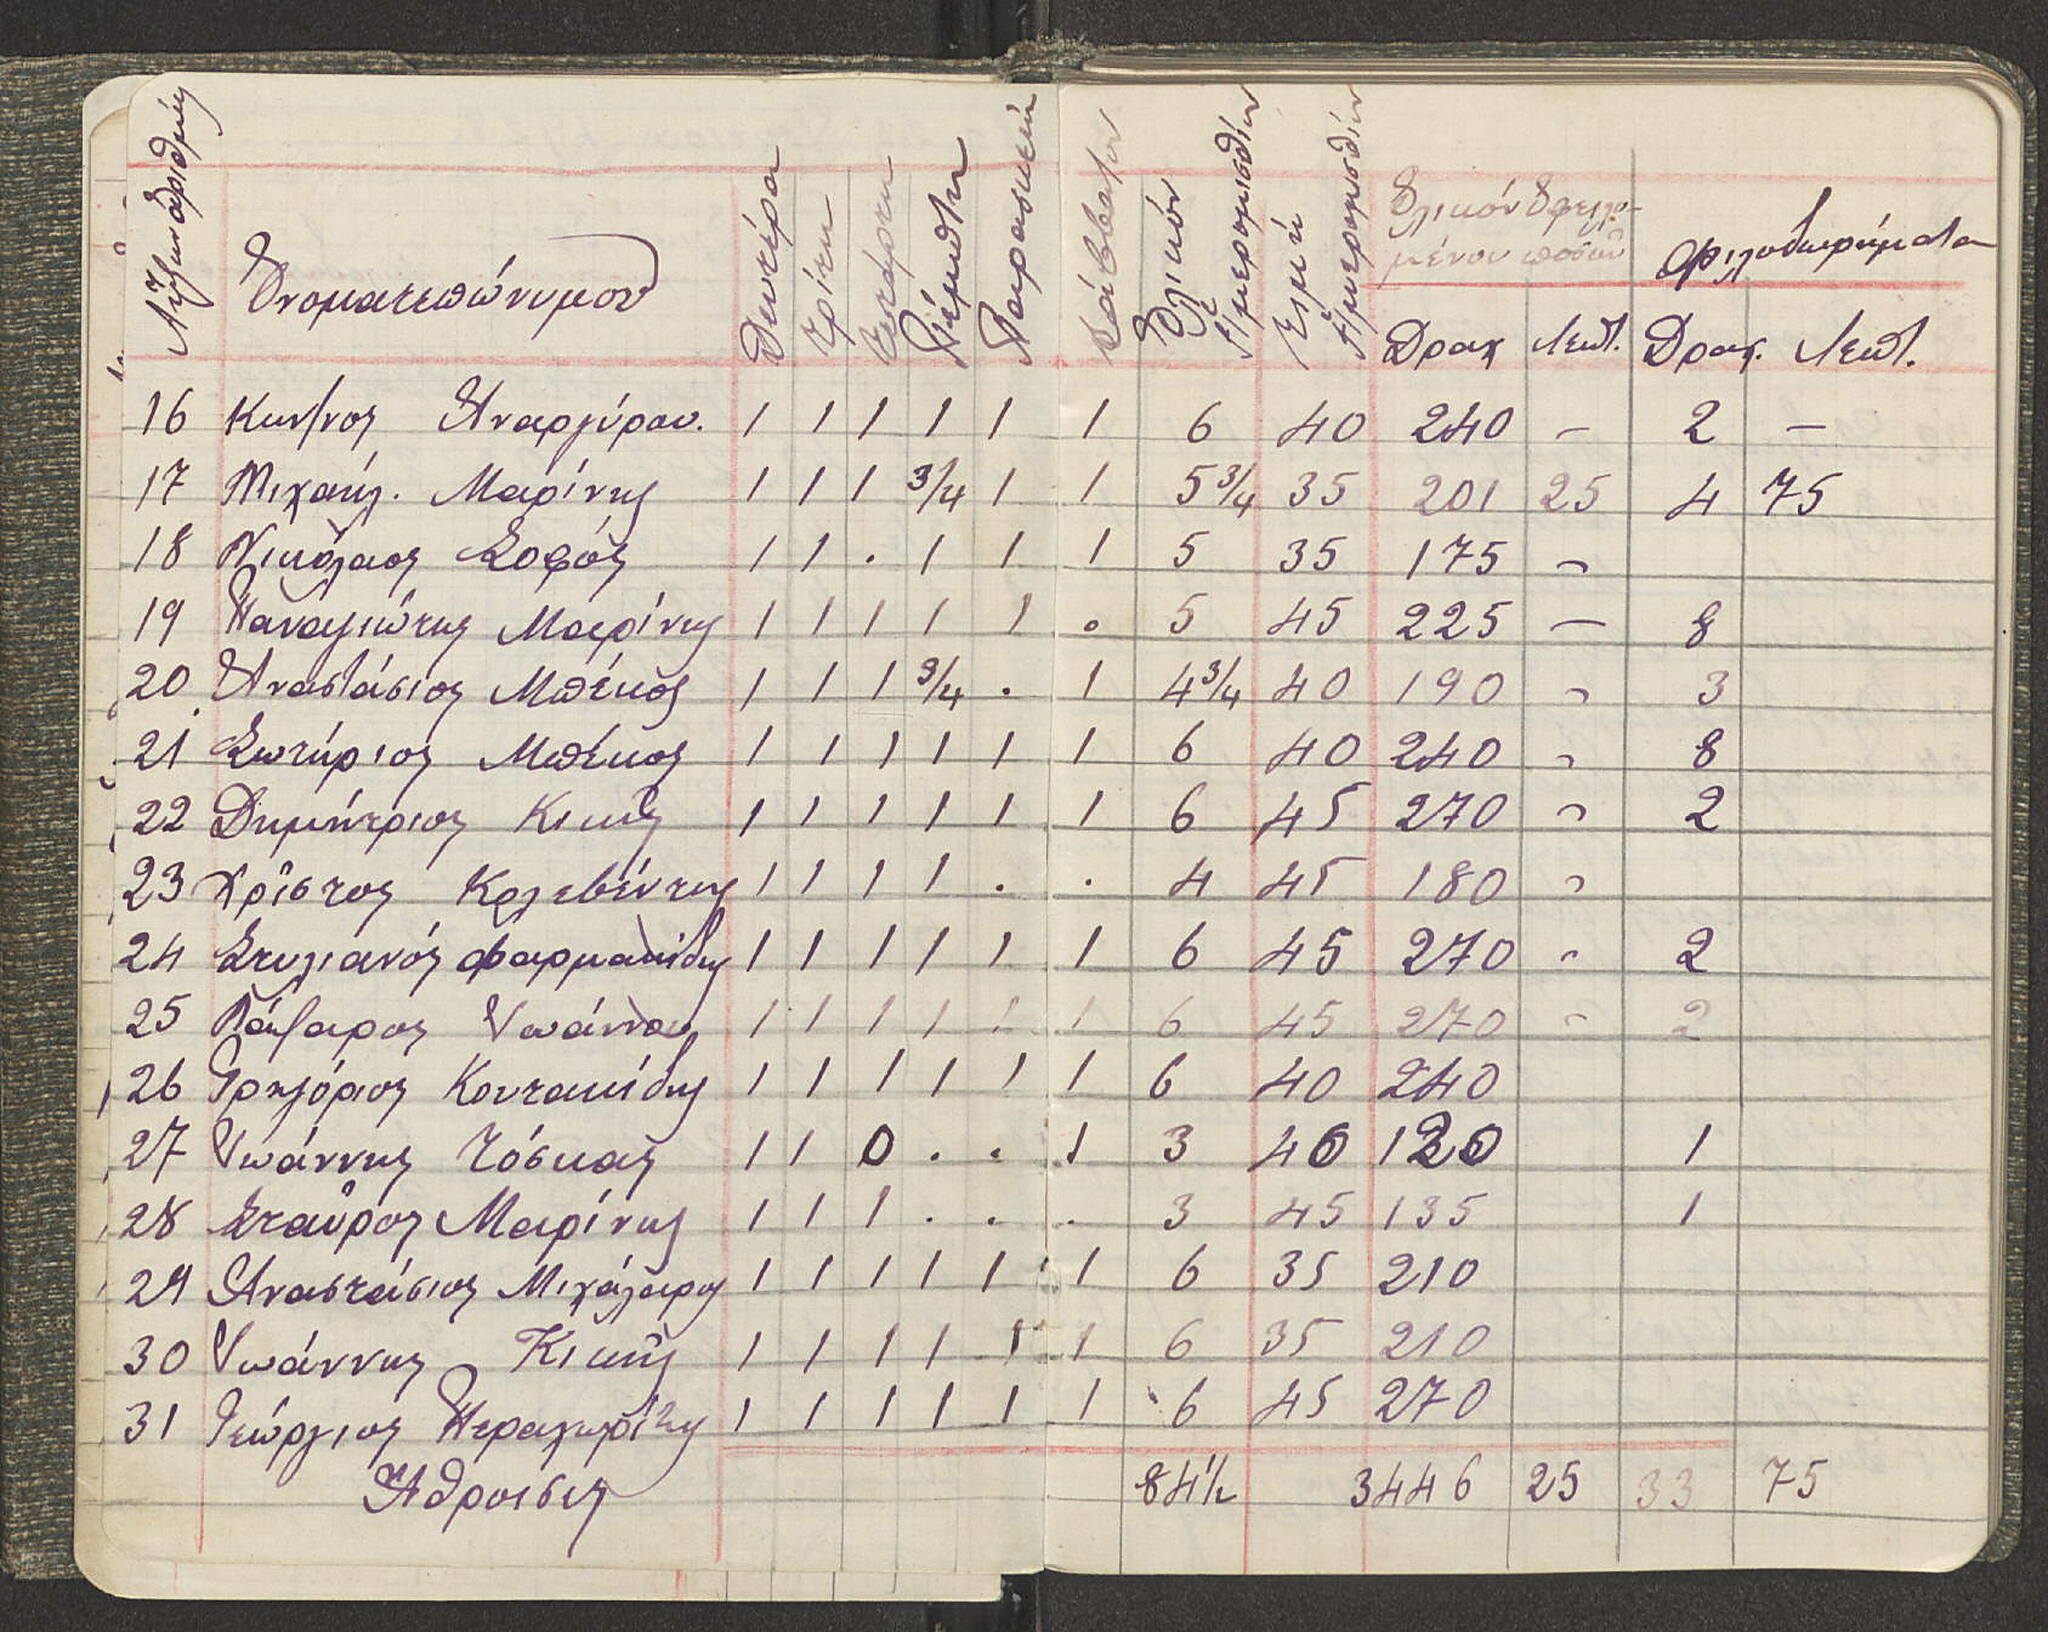 Αὔξων ἀριθμός Ὀνοματεπώνυμον Δευτέρα Τρίτη Τετάρτη Πέμπτη Παρασκευή Σάββατον Ὁλικόν ἡμερομισθίων Τιμή ἡμερομισθίων Ὁλικόν ὀφειλομένου ποσοῦ Φιλοδωρήματα
Δραχ Λεπτ. Δραχ. Λεπτ.
16 Κων/νος Ἀναργύρου. 1 1 1 1 1 1 6 40 240 — 2 —
17 Μιχαήλ. Μαρίνης 1 1 1 3/4 1 1 5 3/4 35 201 25 4 75
18 Νικόλαος Σοφός 1 1 . 1 1 1 5 35 175 —
19 Παναγιώτης Μαρίνης 1 1 1 1 1 . 5 45 225 — 8
20 Ἀναστάσιος Μπέκος 1 1 1 3/4 . 1 4 3/4 40 190 — 3
21 Σωτήριος Μπέκος 1 1 1 1 1 1 6 40 240 — 8
22 Δημήτριος Κικῆς 1 1 1 1 1 1 6 45 270 — 2
23 Χρῖστος 1 1 1 1 . . 4 45 180 —
24 Στυλιανός Φαρμακίδης 1 1 1 1 1 1 6 45 270 — 2
25 Λάζαρος Ἰωάννου 1 1 1 1 1 1 6 45 270 — 2
26 Γρηγόριος Κουτακίδης 1 1 1 1 1 1 6 40 240
27 Ἰωάννης Τόσκας 1 1 0 . . 1 3 40 120 1
28 Σταῦρος Μαρίνης 1 1 1 . . . 3 45 135 1
29 Ἀναστάσιος Μιχάλαρος 1 1 1 1 1 1 6 35 210
30 Ἰωάννης Κικῆς 1 1 1 1 1 1 6 35 210
31 Γεώργιος 1 1 1 1 1 1 6 45 270
Ἄθροισις 84 1/2 3446 25 33 75